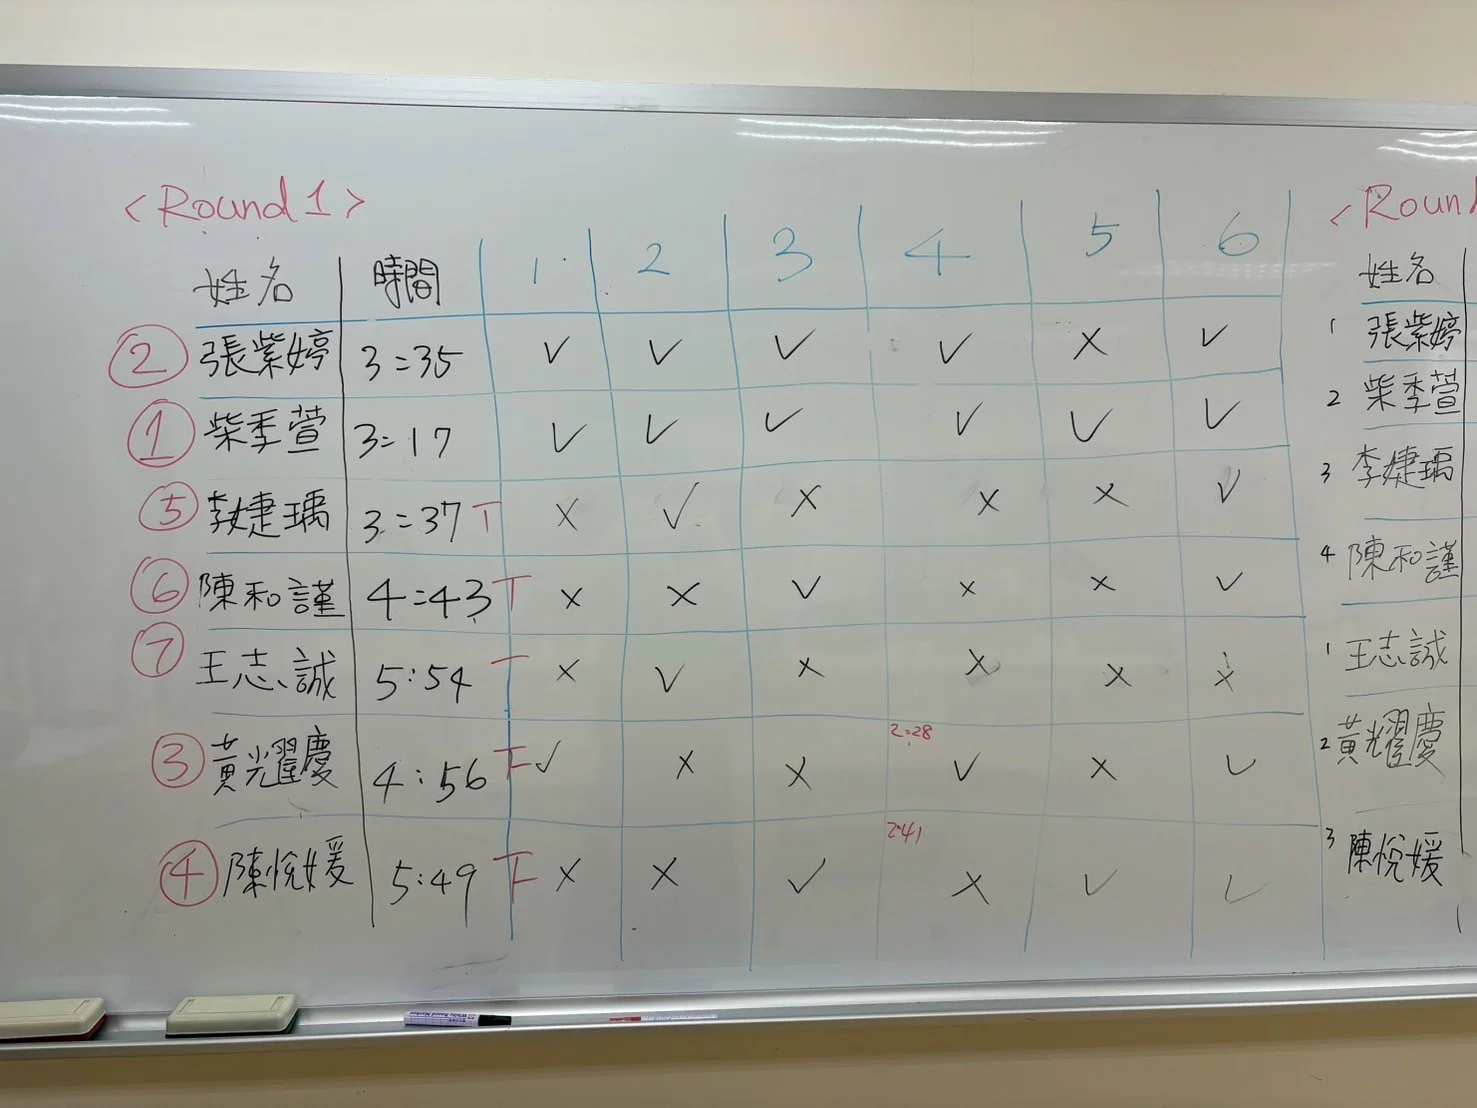 <Round 1>
姓名 時間 1 2 3 4 5 6
② 張紫婷 3:35 ✓ ✓ ✓ ✓ × ✓
① 柴季萱 3:17 ✓ ✓ ✓ ✓ ✓ ✓
⑤ 李婕瑀 3:37 T × ✓ × × × ✓
⑥ 陳和謹 4:43 T × × ✓ × × ✓
⑦ 王志誠 5:54 T × ✓ × × × ×
2:28
③ 黃耀慶 4:56 F ✓ × × ✓ × ✓
2:41
④ 陳悅媛 5:49 F × × ✓ × ✓ ✓
<Roun
姓名
1 張紫婷
2 柴季萱
3 李婕瑀
4 陳和謹
1 王志誠
2 黃耀慶
3 陳悅媛